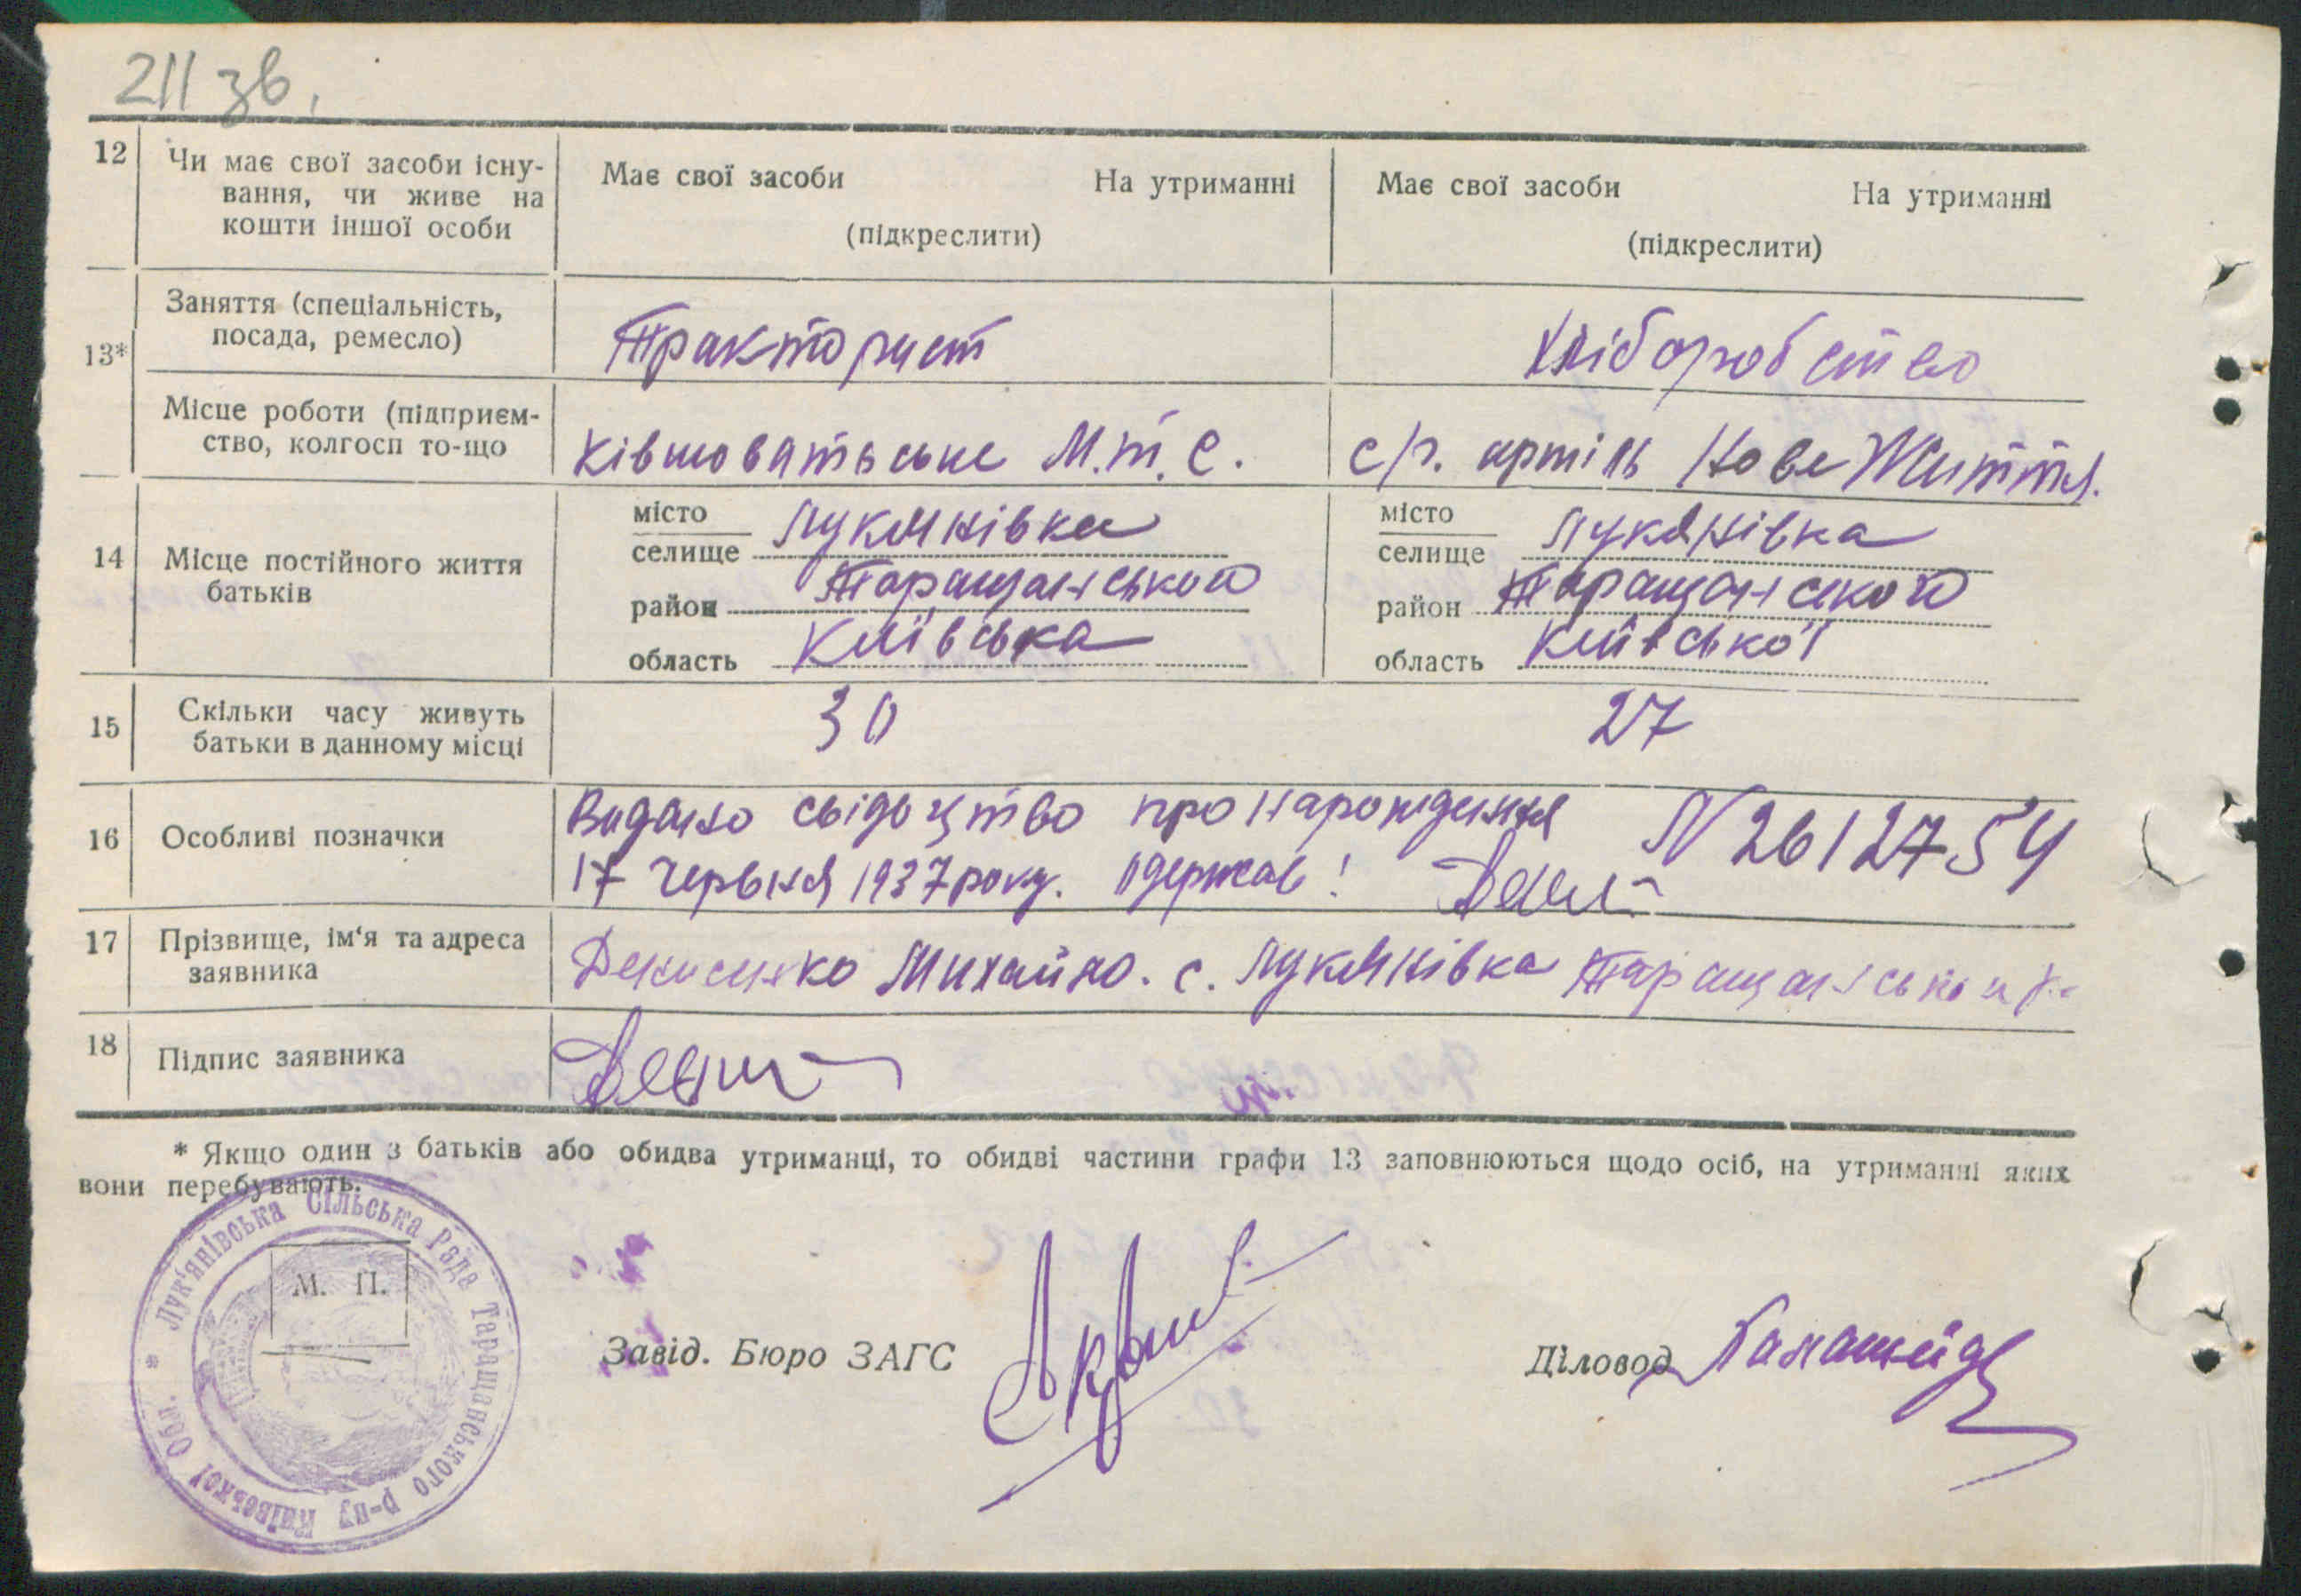 211 зв.
12
Чи має свої засоби існу-
вання, чи живе на
кошти іншої особи
Має свої засоби На утриманні
(підкреслити)
Має свої засоби На утриманні
(підкреслити)
13*
Заняття (спеціальність,
посада, ремесло)
Тракторист
Хліборобство
Місце роботи (підприєм-
ство, колгосп то-що
Ківшоватьське М.т.с.
с/г. артіль Нове Життя.
14
Місце постійного життя
батьків
місто
селище Лукянівка
район Таращанського
область Київська
місто
селище Лукянівка
район Таращанського
область Київської
15
Скільки часу живуть
батьки в данному місці
30
27
16
Особливі позначки
Видано свідоцтво про народження N 2612754
17 червня 1937 року. Одержав!
17
Прізвище, ім'я та адреса
заявника
Денисенко Михайло. с. Лукянівка
18
Підпис заявника
* Якщо один з батьків або обидва утриманці, то обидві частини графи 13 заповнюються щодо осіб, на утриманні яких
вони перебувають.
Лук'янівська Сільська Рада Таращанського р-ну Київської Обл. *
М. П.
Завід. Бюро ЗАГС
Діловод